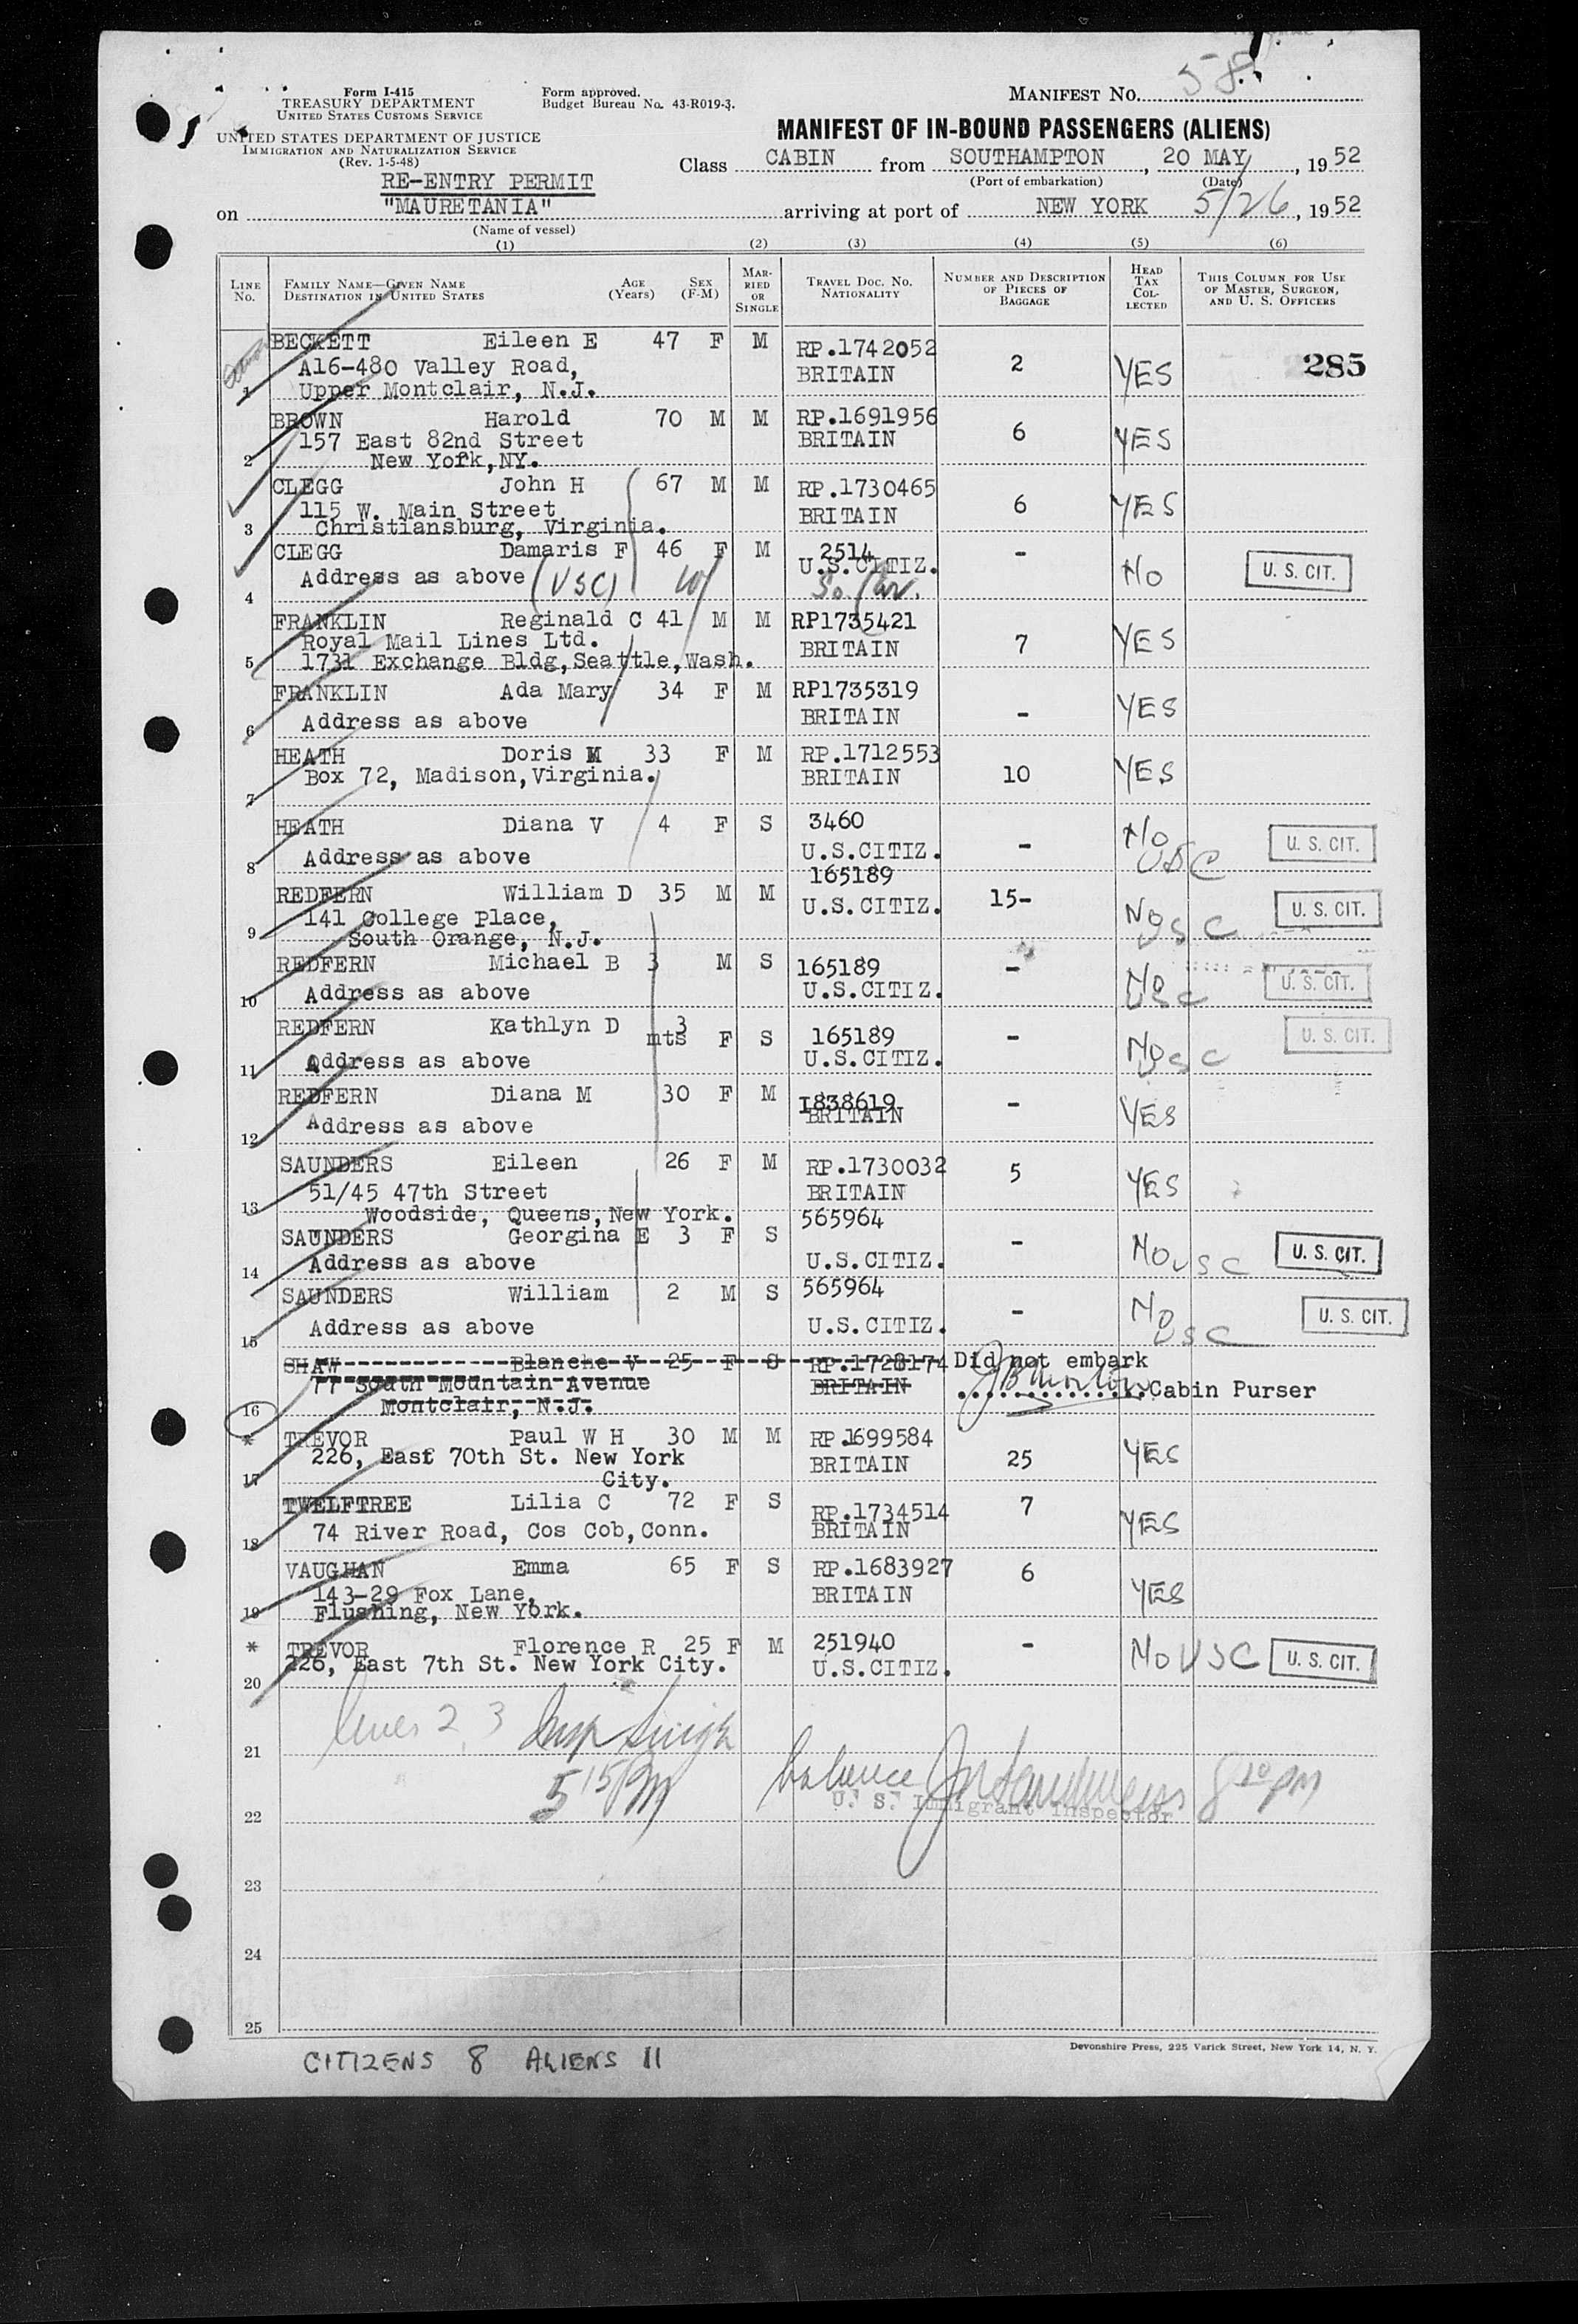 58
Form I-415
TREASURY DEPARTMENT
UNITED STATES CUSTOMS SERVICE
Form approved.
Budget Bureau No. 43-R019-3.
MANIFEST NO.
UNITED STATES DEPARTMENT OF JUSTICE
IMMIGRATION AND NATURALIZATION SERVICE
(Rev. 1-5-48)
MANIFEST OF IN-BOUND PASSENGERS (ALIENS)
Class CABIN from SOUTHAMPTON, 20 MAY, 1952
(Port of embarkation) (Date)
RE-ENTRY PERMIT
on "MAURETANIA" arriving at port of NEW YORK 5/26, 1952
(Name of vessel)
(1) (2) (3) (4) (5) (6)
LINE NO. FAMILY NAME—GIVEN NAME DESTINATION IN UNITED STATES AGE (Years) SEX (F-M) MARRIED OR SINGLE TRAVEL DOC. NO. NATIONALITY NUMBER AND DESCRIPTION OF PIECES OF BAGGAGE HEAD TAX COLLECTED THIS COLUMN FOR USE OF MASTER, SURGEON, AND U. S. OFFICERS
BECKETT Eileen E 47 F M RP.1742052
A16-480 Valley Road, BRITAIN 2 YES 285
1 Upper Montclair, N.J.
BROWN Harold 70 M M RP.1691956
157 East 82nd Street BRITAIN 6 YES
2 New York,NY.
CLEGG John H 67 M M RP.1730465
115 W. Main Street BRITAIN 6 YES
3 Christiansburg, Virginia.
CLEGG Damaris F 46 F M 2514
U.S.CITIZ. - No U. S. CIT.
4 Address as above (USC)
FRANKLIN Reginald C 41 M M RP1735421
Royal Mail Lines Ltd. BRITAIN 7 YES
5 1731 Exchange Bldg,Seattle,Wash.
FRANKLIN Ada Mary 34 F M RP1735319
6 Address as above BRITAIN - YES
HEATH Doris M 33 F M RP.1712553
7 Box 72, Madison,Virginia. BRITAIN 10 YES
HEATH Diana V 4 F S 3460
8 Address as above U.S.CITIZ. - No USC U. S. CIT.
REDFERN William D 35 M M 165189
141 College Place, U.S.CITIZ. 15- No USC U. S. CIT.
9 South Orange, N.J.
REDFERN Michael B 3 M S 165189
10 Address as above U.S.CITIZ. - No USC U. S. CIT.
REDFERN Kathlyn D 3 mts F S 165189
11 Address as above U.S.CITIZ. - No USC U. S. CIT.
REDFERN Diana M 30 F M I838619
12 Address as above BRITAIN - YES
SAUNDERS Eileen 26 F M RP.1730032
51/45 47th Street BRITAIN 5 YES
13 Woodside, Queens,New York.
SAUNDERS Georgina E 3 F S 565964
14 Address as above U.S.CITIZ. - No USC U. S. CIT.
SAUNDERS William 2 M S 565964
15 Address as above U.S.CITIZ. - No USC U. S. CIT.
SHAW Blanche V 25 F S RP.1728174 Did not embark
77 South Mountain Avenue BRITAIN Cabin Purser
16 Montclair, N.J.
* TREVOR Paul W H 30 M M RP.1699584
226, East 70th St. New York BRITAIN 25 YES
17 City.
TWELFTREE Lilia C 72 F S RP.1734514 7
18 74 River Road, Cos Cob,Conn. BRITAIN YES
VAUGHAN Emma 65 F S RP.1683927 6
143-29 Fox Lane, BRITAIN YES
19 Flushing, New York.
* TREVOR Florence R 25 F M 251940 - No USC U. S. CIT.
226, East 7th St. New York City. U.S.CITIZ.
20
lines 2, 3 Insp
21
5 15 PM balance 8 10 PM
U. S. Immigrant Inspector
22
23
24
25
Devonshire Press, 225 Varick Street, New York 14, N. Y.
CITIZENS 8 ALIENS 11